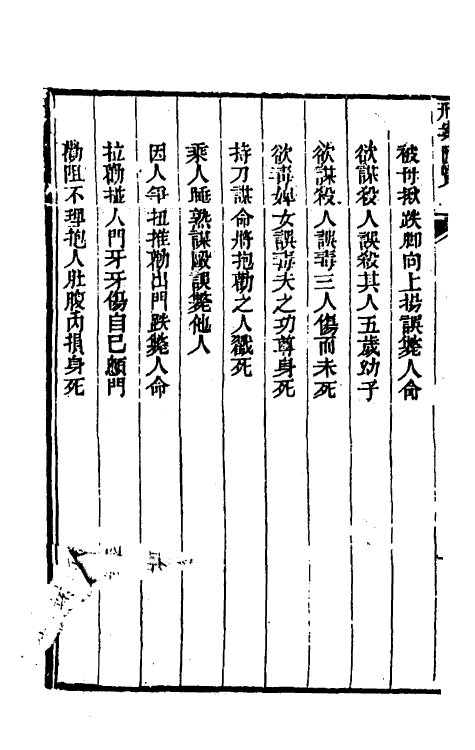 刑案匯覽
被母揪跌脚向上揚誤斃人命
欲謀殺人誤殺其人五歲幼子
欲謀殺人誤毒三人傷而未死
欲毒婢女誤毒夫之功尊身死
持刀謀命將抱勸之人戳死
乘人睡熟謀毆誤斃他人
因人爭扭推勸出門跌斃人命
拉勸撞人門牙牙傷自己顖門
勸阻不理抱人肚腹內損身死